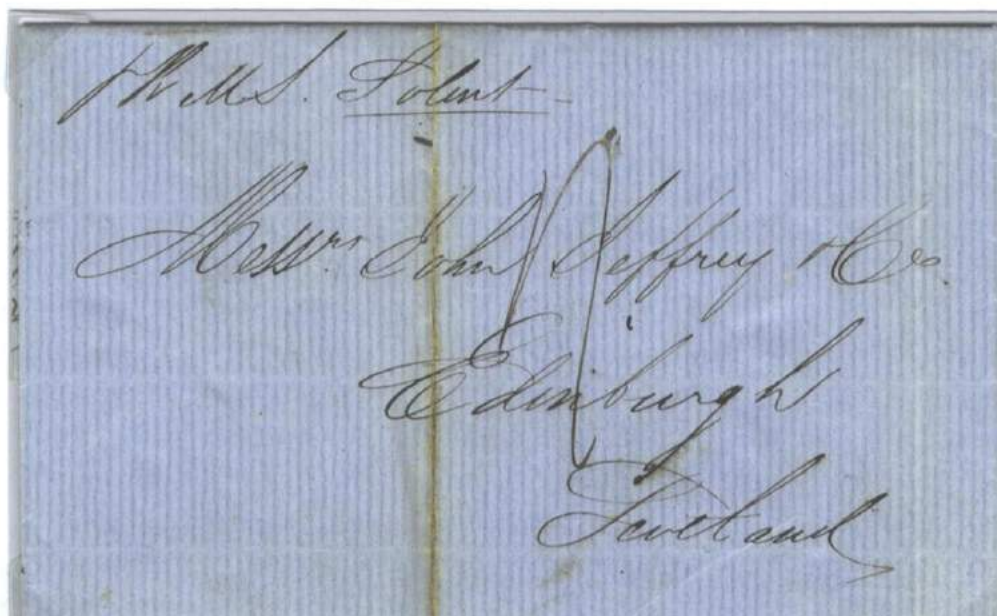 p RMS. Solent
Messrs. John Jeffrey & Co.
Edinburgh
Scotland